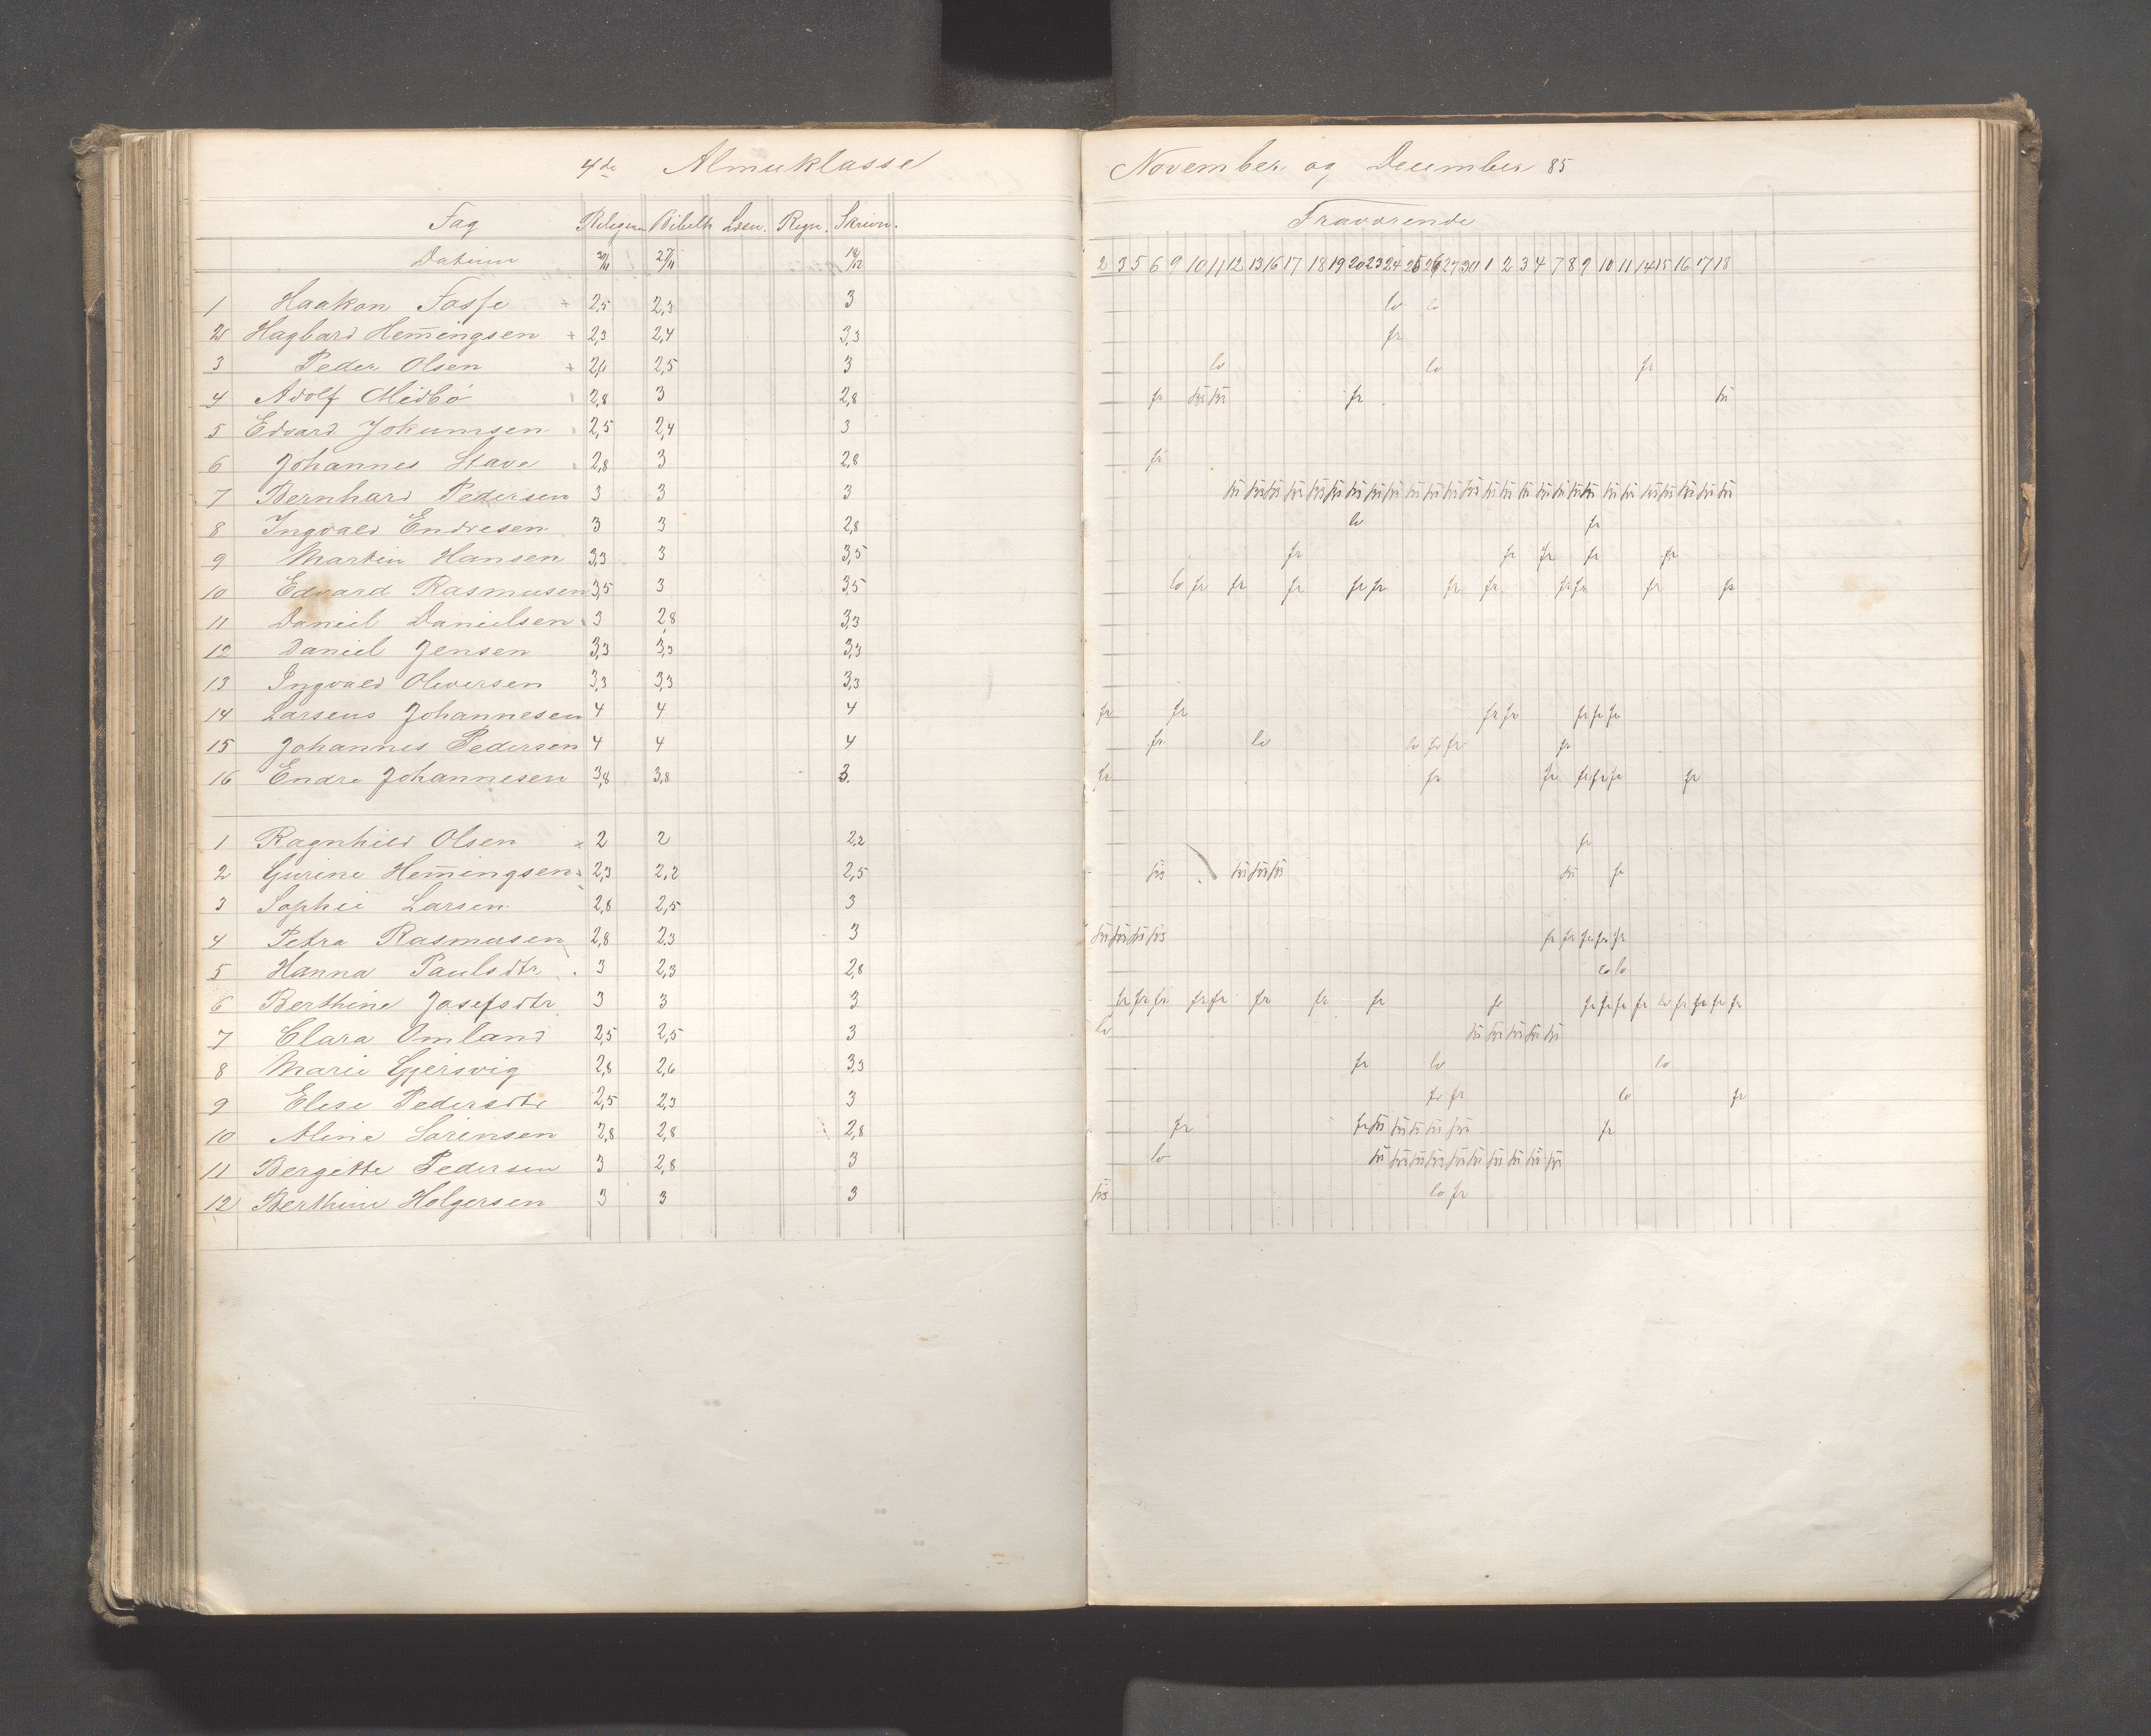 4de Almueklasse
Fag Religion Bibelh. Læsn. Regn. Skrivn.
Datum 30/11 27/11 18/12
1 Haakon Fosse + 2,5 2,3 3
2 Hagbard Hem̄ingsen + 2,3 2,4 3,3
3 Peder Olsen + 2,5 3
4 Adolf Midbö 2,8 3 2,8
5 Edvard Jokumsen 2,5 2,4 3
6 Johannes Stave 2,8 3 2,8
7 Bernhard Pedersen 3 3 3
8 Ingvald Endresen 3 3 2,8
9 Martin Hansen 3,3 3 3,5
10 Edvard Rasmusen 3,5 3 3,5
11 Daniel Danielsen 3 2,8 3,3
12 Daniel Jensen 3,3 3,3 3,3
13 Ingvald Oliversen 3,3 3,3 3,3
14 Larseus Johannesen 4 4 4
15 Johannes Pedersen 4 4 4
16 Endre Johannesen 3,8 3,8 3
1 Ragnhild Olsen 2 2 2,2
2 Gurine Hem̄ingsen 2,3 2,2 2,5
3 Sophie Larsen 2,8 2,5 3
4 Petra Rasmusen 2,8 2,3 3
5 Hanna Paulsdtr. 3 2,3 2,8
6 Berthine Josefsdtr. 3 3 3
7 Clara Omland 2,5 2,5 3
8 Marie Gjersvig 2,8 2,6 3,3
9 Elise Pedersdtr 2,5 2,3 3
10 Aline Sörensen 2,8 2,8 2,8
11 Bergitte Pedersen 3 2,8 3
12 Berthine Holgersen 3 3 3
November og December 85
Fraværende
2 3 5 6 9 10 11 12 13 16 17 18 19 20 23 24 25 26 27 30 1 2 3 4 7 8 9 10 11 14 15 16 17 18
lo lo
fr
lo lo fr
fr fr
fr
lo fr
fr fr fr fr fr
lo fr fr fr fr fr fr fr fr fr fr fr
fr fr fr fr fr fr fr
fr lo lo fr fr fr
fr fr fr fr fr fr fr
fr
fr
fr fr fr fr fr
lo lo
fr fr fr fr fr fr fr fr fr fr fr fr fr lo fr fr fr fr
lo
fr lo lo
fr fr lo fr
fr fr fr
lo
lo fr